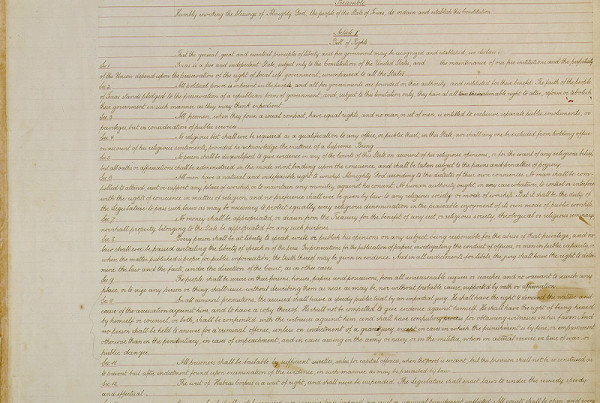 Preamble
Humbly invoking the blessings of Almighty God, the people of the State of Texas, do ordain and establish this Constitution.
Article 1
Bill of Rights
That the general, great and essential principles of liberty and free government may be recognized and established, we declare:
Sec. 1. Texas is a free and independent State, subject only to the Constitution of the United States, and the maintenance of our free institutions and the perpetuity
of the Union depend upon the preservation of the right of local self government, unimpaired to all the States.
Sec. 2. All political power is inherent in the people, and all free governments are founded on their authority, and instituted for their benefit. The faith of the people
of Texas stands pledged to the preservation of a republican form of government, and, subject to this limitation only, they have at all times the inalienable right to alter, reform or abolish
their government in such manner as they may think expedient.
Sec. 3. All freemen, when they form a social compact, have equal rights, and no man, or set of men, is entitled to exclusive separate public emoluments, or
privileges, but in consideration of public services.
Sec. 4. No religious test shall ever be required as a qualification to any office, or public trust, in this State; nor shall any one be excluded from holding office
on account of his religious sentiments, provided he acknowledge the existence of a Supreme Being.
Sec. 5. No person shall be disqualified to give evidence in any of the Courts of this State on account of his religious opinions, or for the want of any religious belief,
but all oaths or affirmations shall be administered in the mode most binding upon the conscience, and shall be taken subject to the pains and penalties of perjury.
Sec. 6. All men have a natural and indefeasible right to worship Almighty God according to the dictates of their own consciences. No man shall be com-
pelled to attend, erect or support any place of worship, or to maintain any ministry against his consent. No human authority ought, in any case whatever, to control or interfere
with the rights of conscience in matters of religion, and no preference shall ever be given by law to any religious society or mode of worship. But it shall be the duty of
the Legislature to pass such laws as may be necessary to protect equally every religious denomination in the peaceable enjoyment of its own mode of public worship.
Sec. 7. No money shall be appropriated, or drawn from the Treasury for the benefit of any sect, or religious society, theological or religious seminary,
nor shall property belonging to the State be appropriated for any such purposes.
Sec. 8. Every person shall be at liberty to speak, write or publish his opinions on any subject, being responsible for the abuse of that privilege; and no
law shall ever be passed curtailing the liberty of speech or of the press. In prosecutions for the publication of papers, investigating the conduct of officers, or men in public capacity, or
when the matter published is proper for public information, the truth thereof may be given in evidence. And in all indictments for libels, the jury shall have the right to deter-
mine the law and the facts, under the direction of the court, as in other cases.
Sec. 9. The people shall be secure in their persons, houses, papers and possessions, from all unreasonable seizures or searches, and no warrant to search any
place, or to seize any person or thing, shall issue without describing them as near as may be, nor without probable cause, supported by oath or affirmation.
Sec. 10. In all criminal prosecutions, the accused shall have a speedy public trial by an impartial jury. He shall have the right to demand the nature and
cause of the accusation against him, and to have a copy thereof. He shall not be compelled to give evidence against himself. He shall have the right of being heard
by himself or counsel, or both, shall be confronted with the witnesses against him, and shall have compulsory process for obtaining witnesses in his favor. And
no person shall be held to answer for a criminal offense, unless on indictment of a grand jury, except in cases in which the punishment is by fine, or imprisonment
otherwise than in the penitentiary, in cases of impeachment, and in cases arising in the army or navy, or in the militia, when in actual service in time of war or
public danger.
Sec. 11. All prisoners shall be bailable by sufficient sureties, unless for capital offenses, when the proof is evident; but this provision shall not be so construed as
to prevent bail after indictment found upon examination of the evidence, in such manner as may be prescribed by law.
Sec. 12. The writ of Habeas Corpus is a writ of right, and shall never be suspended. The Legislature shall enact laws to render the remedy speedy
and effectual.